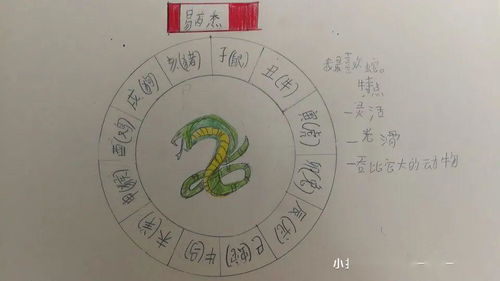 易百杰
子(鼠)
丑(牛)
寅(虎)
卯(兔)
辰(龙)
巳(蛇)
午(马)
未(羊)
申(猴)
酉(鸡)
戌(狗)
亥(猪)
我最喜欢蛇。
特点
一灵活
一光滑
一吞比它大的动物
小